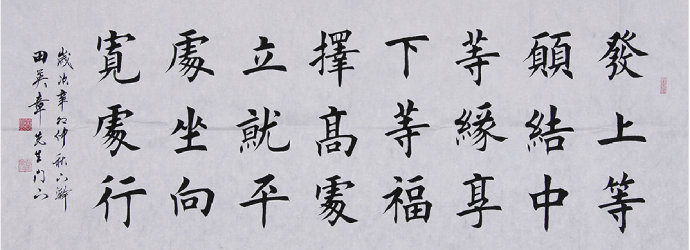 發上等
願結中
等緣享
下等福
擇髙處
立就平
處坐向
寬處行
歲次辛卯仲秋
田英章先生門下